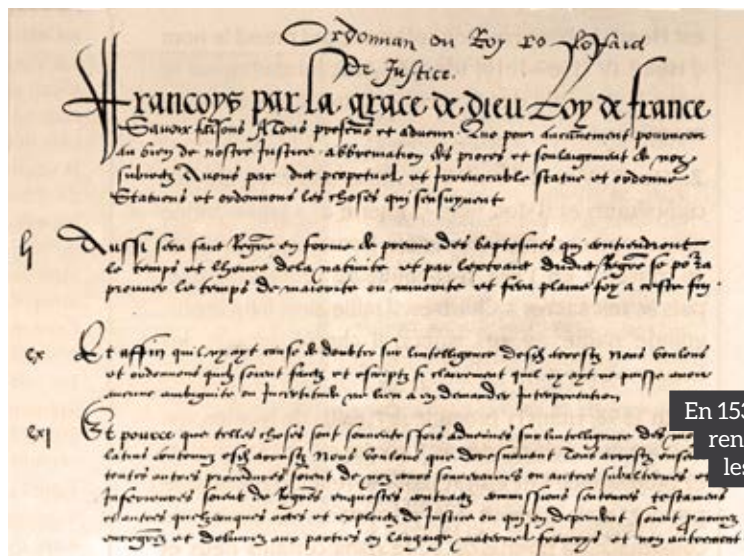 Ordonnan du Roy
De Justice.
Francoys par la grace de dieu Roy de france
Savoir faisons A tous presens et advenir. Que pour aucunement pourveoir
au bien de nostre Justice abbreviation des proces et soulagement de noz
subiectz Avons par edict perpetuel et Irrevocable statue et ordonne
Statuons et ordonnons les choses qui sensuyvent
li Aussi sera faict Regre en forme de preuve des baptesmes qui contiendront
le temps et lheure de la nativite et par lextraict dudict Regre se pourra
prouver le temps de maiorite ou minorite et fera plaine foy a ceste fin.
cx Et affin quil ny ayt cause de doubter sur lintelligence desdictz arrestz Nous voulons
et ordonnons quilz soient faictz et escriptz si clairement quil ny ayt ne puisse avoir
aucune ambiguite ou Incertitude ne lieu a en demander Interpretation
cxi Et pource que telles choses sont souventesfois advenues sur lintelligence des mo
latins contenuz esdictz arrestz Nous voulons que doresnavant Tous arrestz ensem
toutes autres procedures soient de noz cours souveraines ou autres subalternes et
Inferieures soient de Regres enquestes contractz commissions sentences testamens
et autres quelzconques actes et exploictz de Justice ou qui en dependent soient prononcez
enregrez et delivrez aux parties en langaige maternel francoys et non autrement
En 153
ren
les